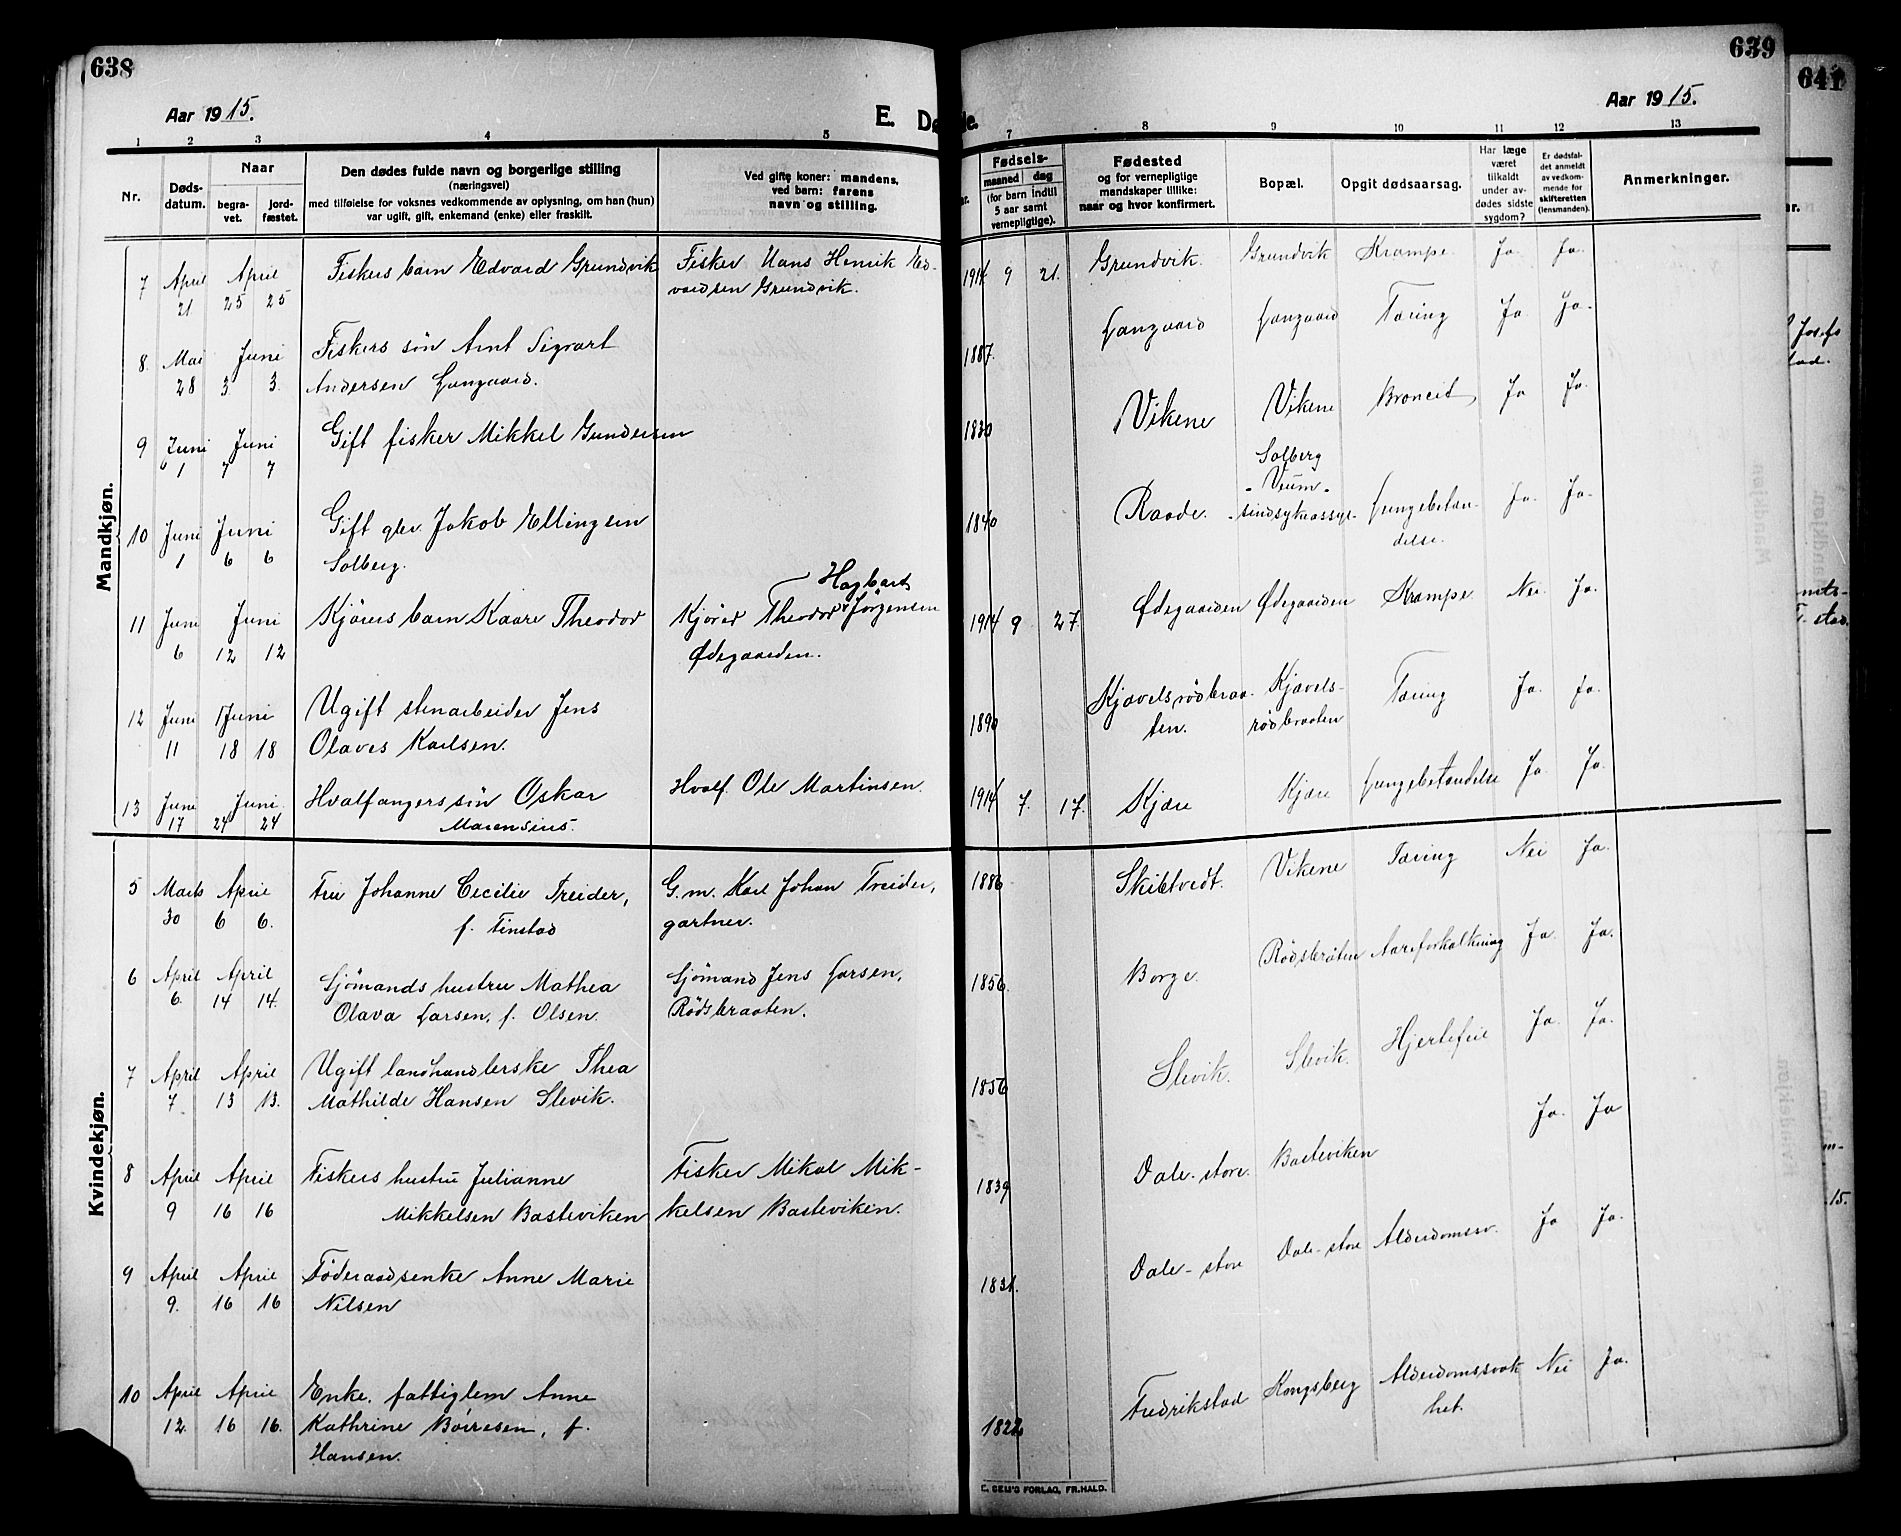 638
639
641
Aar 1915.
E. Dø
de.
Aar 1915.
1 2 3 4 5 7 8 9 10 11 12 13
Nr.
Døds-
datum.
Naar
begra-
vet.
jord-
fæstet.
Den dødes fulde navn og borgerlige stilling
(næringsvei)
med tilføielse for voksnes vedkommende av oplysning, om han (hun)
var ugift, gift, enkemand (enke) eller fraskilt.
Ved gifte koner: mandens,
ved barn: farens
navn og stilling.
Fødsels-
maaned dag
(for barn indtil
5 aar samt
vernepligtige).
Fødested
og for vernepligtige
mandskaper tillike:
naar og hvor konfirmert.
Bopæl.
Opgit dødsaarsag.
Har læge
været
tilkaldt
under av-
dødes sidste
sygdom?
Er dødsfal-
det anmeldt
av vedkom-
mende for
skifteretten
(lensmanden).
Anmerkninger.
Mandkjøn.
7 April April Fiskers barn Edvard Grundvik Fisker Hans Henrik Ed- 1914 9 21. Grundvik. Grundvik Krampe Ja. Ja.
21 25 25 vardsen Grundvik.
8. Mai Juni Fiskers søn Arnt Sigvart 1887. Langaard Langaard Tæring Ja Ja.
28 3. 3. Andersen Langaard.
9 Juni Juni Gift fisker Mikkel Gundersen 1830 Vikene Vikene Broncit Ja Ja.
1 7 7
10 Juni Juni Gift Jakob Ellingsen 1840 Raade. Solberg
- Veum -
sindsykeasyl. Lungebetæn-
delse. Ja. Ja.
1 6 6 Solberg.
11 Juni Juni Kjørers barn Kaare Theodor Kjører Theodor Hagbart Jørgensen 1914 9 27 Ødegaarden Ødegaarden Krampe. Nei Ja.
6 12 12 Ødegaarden.
12 Juni Juni Ugift stenarbeider Jens 1890 Kjævelsrødbraa-
ten. Kjævels-
rødbraaten Tæring Ja. Ja.
11 18 18 Olaves Karlsen.
13 Juni Juni Hvalfangers søn Oskar Hvalf. Ole Martinsen. 1914 7. 17. Kjære Kjære Lungebetændelse Ja. Ja.
17 24 24 Marensius.
Kvindekjøn.
5 Marts April Fru Johanne Cecilie Treider, G. m. Karl Johan Treider, 1886 Skibtvedt. Vikene Tæring Nei Ja.
30 6 6. f. Finstad gartner.
6 April April Sjømands hustru Mathea Sjømand Jens Larsen, 1856. Borge. Rødsbråten Aareforkalkning Ja. Ja.
6. 14 14. Olava Larsen, f. Olsen. Rødsbraaten.
7 April April Ugift landhandlerske Thea 1856 Slevik. Slevik. Hjertefeil Ja. Ja.
7. 13 13. Mathilde Hansen Slevik.
8 April April Fiskers hustru Julianne Fisker Mikal Mik- 1839 Dale-store. Basteviken Ja. Ja
9 16 16 Mikkelsen Basteviken kelsen Basteviken.
9 April April Føderaadsenke Anne Marie 1831. Dale-store Dale-store Alderdomssv. Ja Ja.
9. 16 16 Nilsen
10 April April Enke, fattiglem Anne 1822 Fredrikstad Kongsberg Alderdomssvak
het. Nei Ja.
12. 16 16. Kathrine Böiresen, f.
Hansen.
E. SEIJ'S FORLAG, FR.HALD.